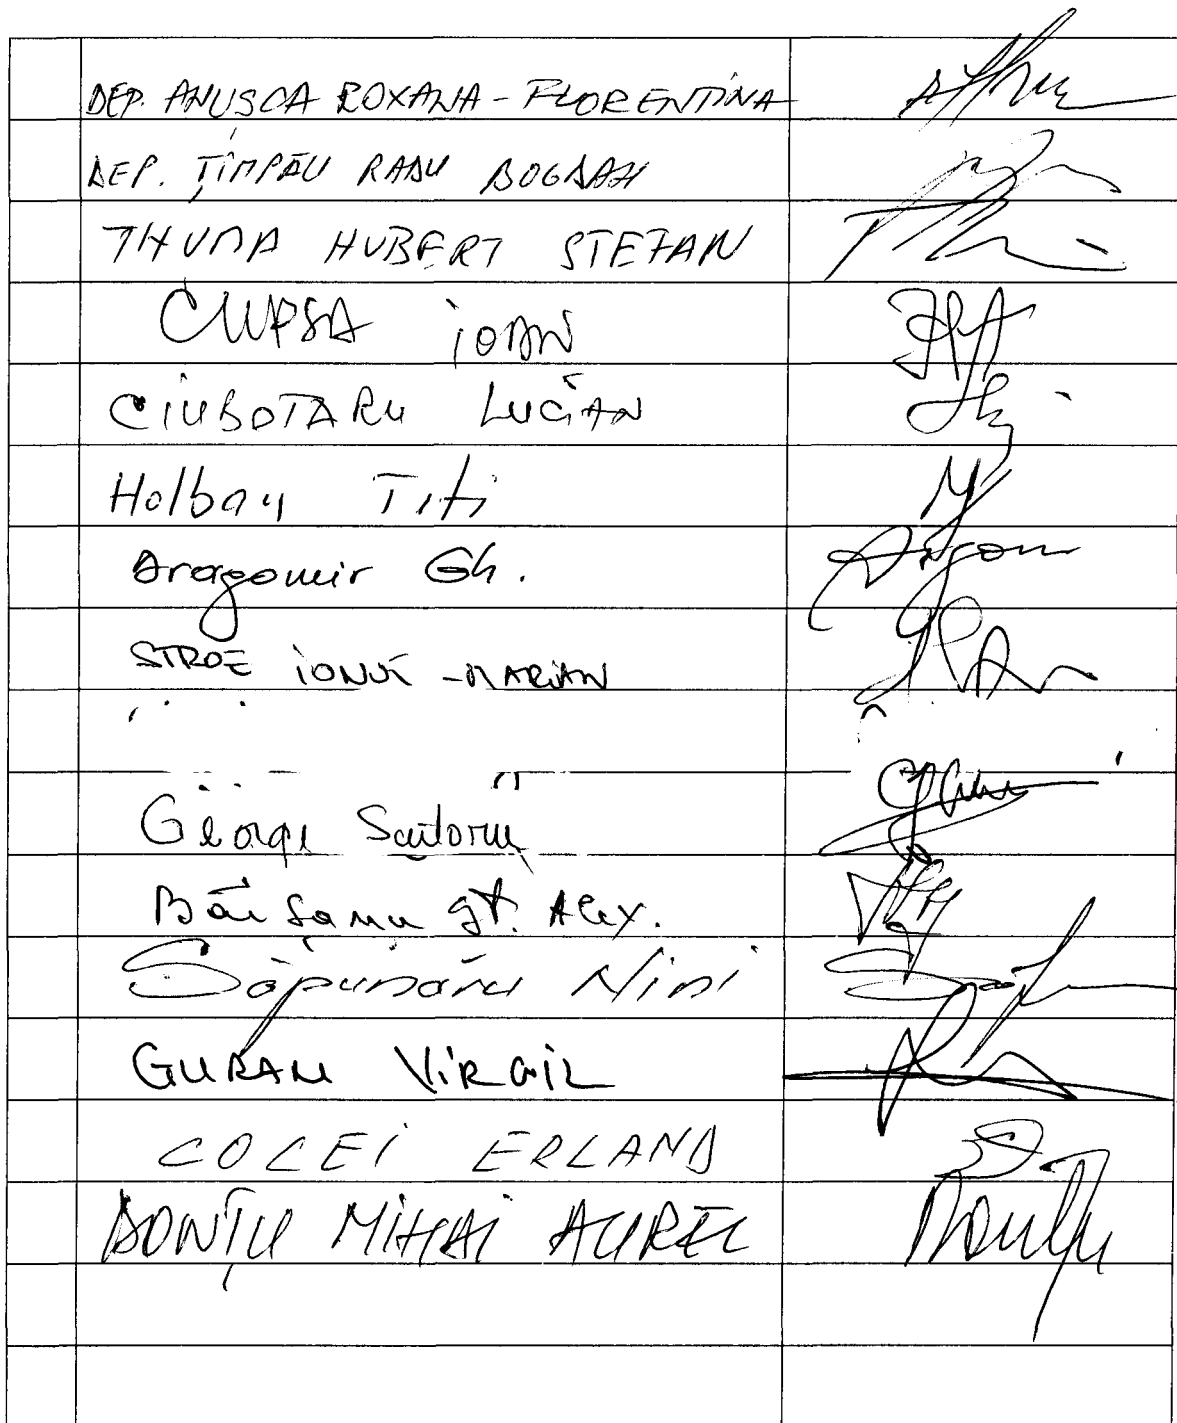 DEP. ANUȘCA ROXANA-FLORENTINA
DEP. ȚÎMPĂU RADU BOGDAN
THUMA HUBERT STEFAN
CUPȘA IOAN
CIUBOTARU LUCIAN
Holban Titi
Dragomir Gh.
STROE IONUȚ-MARIAN
George Scutaru
Băișanu Șt. Alex.
Săpunaru Nini
GURAN VIRGIL
COCEI ERLAND
DONȚU MIHAI AUREL